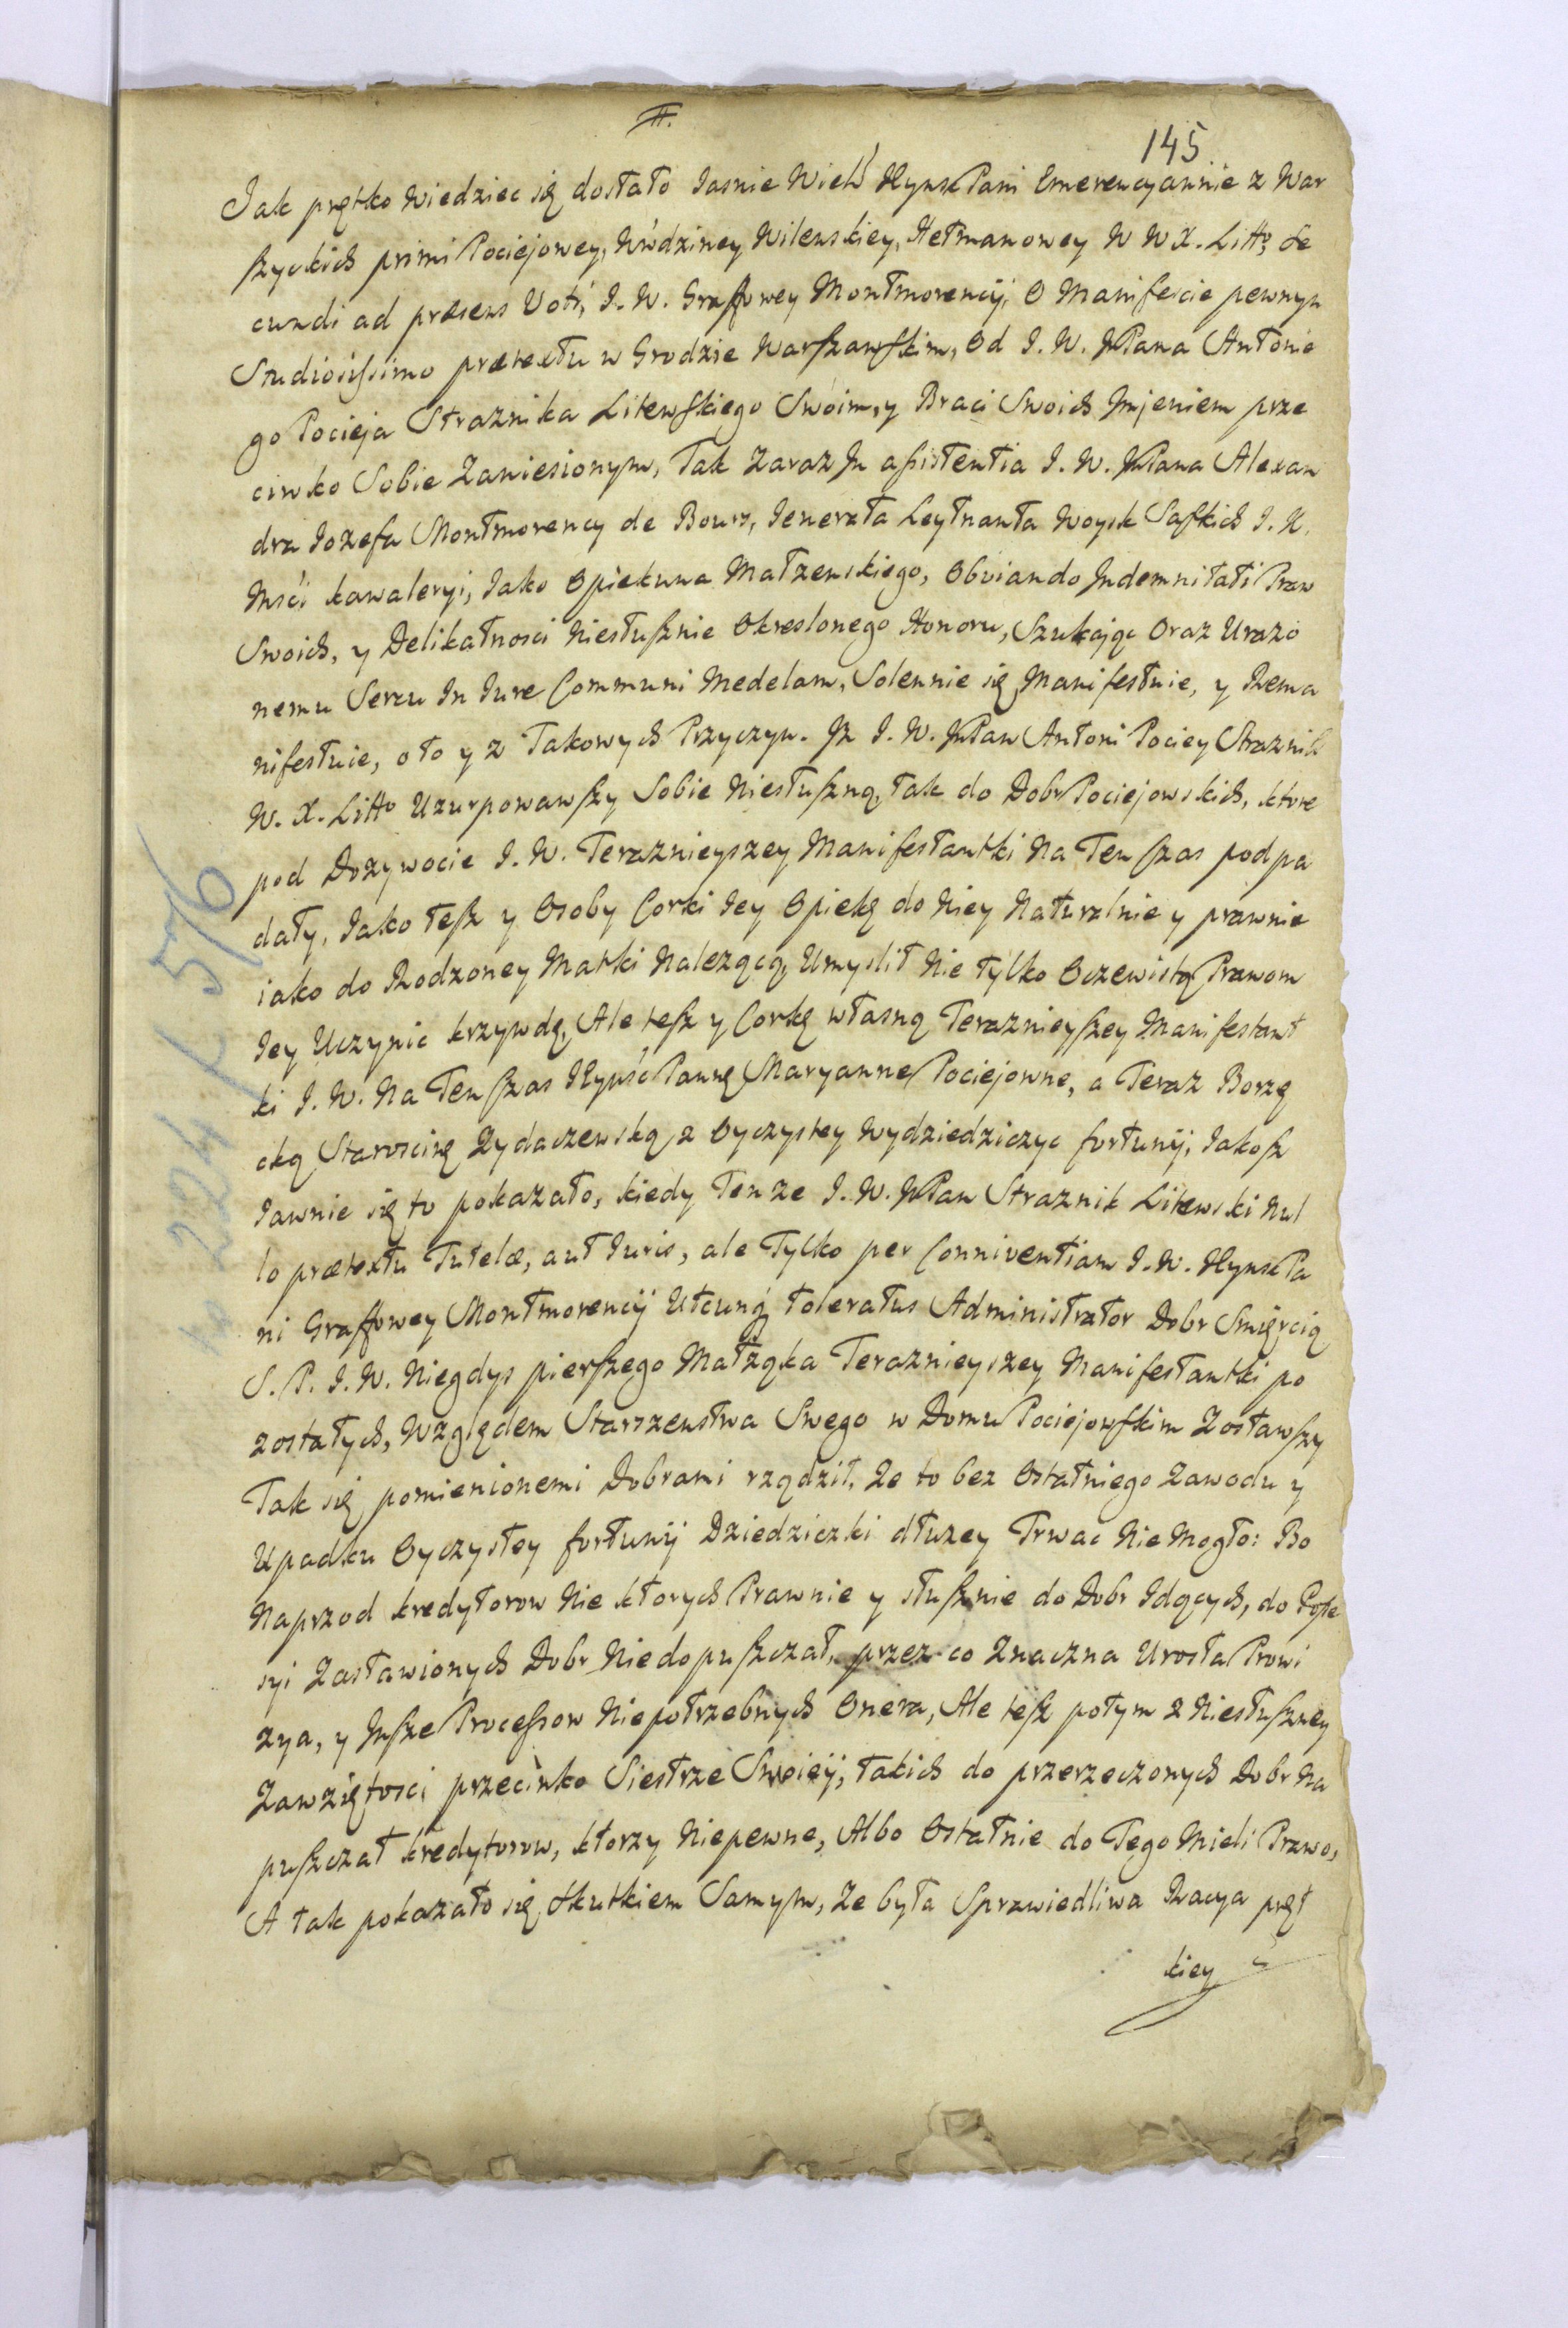 #.
145
Jak prętko Wiedziec się dostało Jasnie Wiel. JHymsć Pani Emerencyannie z War
szyckich primi Pociejowey, Wwdziney Wilenskiey, Hetmanowey W W X. Litto, Se
cundi ad præsens Voti, J. W. Graffowey Montmorencij, O Manifescie pewnym
Studiosissimo prætextu w Grodzie Warszawskim, Od J. W. JmPana Antonie
go Pocieja Straznika Litewskiego Swoim, y Braci Swoich Jmjeniem prze
ciwko Sobie Zaniesionym, Tak Zaraz Jn assistentia J. W. JmPana Alexan
dra Jozefa Montmorency de Bours, Jenerała Leytnanta Woysk Saskich J. K.
Msci kawaleryi, Jako Opiekuna Małzenskiego, Obviando Jndemnitati Praw
Swoich, y Delikatnosci Niesłusznie Okreslonego Honoru, Szukając Oraz Urazo
nemu Sercu Jn Jure Communi Medelam, Solennie się Manifestuie, y Rema
nifestuie, o to y z Takowych Przyczyn. Jz J. W. JmPan Antoni Pociey Straznik
W. X. Litto Uzurpowawszy Sobie Niesłuszną, tak do Dobr Pociejowskich, ktore
pod Dozywocie J. W. Teraznieyszey Manifestantki Na Ten szas podpa
dały, Jako tesz y Osoby Corki Jey Opiekę do Niey Naturalnie y prawnie
iako do Rodzoney Matki Nalezącą, Umyslił Nie tylko Oczewistą Prawom
Jey Uczynic krzywdę, Ale tesz y Corkę własną Teraznieyszey Manifestant
ki J. W. Na Ten szas JHymsć Pannę Maryanne Pociejowne, a Teraz Borzę
cką Staroscinę Zydaczewską z Oyczystey Wydziedziczyc fortunij, Jakosz
Jawnie się to pokazało, kiedy Tenze J. W. JmPan Straznik Litewski Nul
lo prætextu Tutelæ, aut Juris, ale Tylko per Conniventiam J. W. JHymsć Pa
ni Graffowey Montmorencij Utcunq toleratus Administrator Dobr Smiercią
S. P. J. W. Niegdys pierszego Małząka Teraznieyszey Manifestantki po
zostałych, Względem Starszenstwa Swego w Domu Pociejowskim Zostawszy
Tak się pomienionemi Dobrami rządził, Ze to bez Ostatniego Zawodu y
Upadku Oyczystey fortunij Dziedziczki dłuzey Trwac Nie Mogło: Bo
Naprzod kredytorow Nie ktorych Prawnie y słusznie do Dobr Jdących, do Posse
syi Zastawionych Dobr Niedopuszczał, przez co Znaczna Urosła Prowi
zya, y Jnsze Processow Niepotrzebnych Onera, Ale tesz potym z Niesłuszney
Zawziętosci przeciwko Siestrze Swoieij, takich do przerzeczonych Dobr Na
puszczał kredytorow, ktorzy Niepewne, Albo Ostatnie do Tego Mieli Prawo,
A tak pokazało się skutkiem Samym, Ze była Sprawiedliwa Racya pręt
kiey
224 f 576